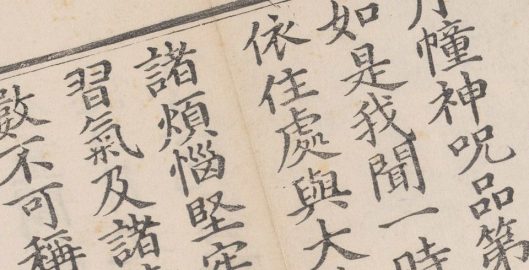 幢神呪品第
如是我聞一時
依住處與大
諸煩惱堅牢
習氣及諸
數不可稱